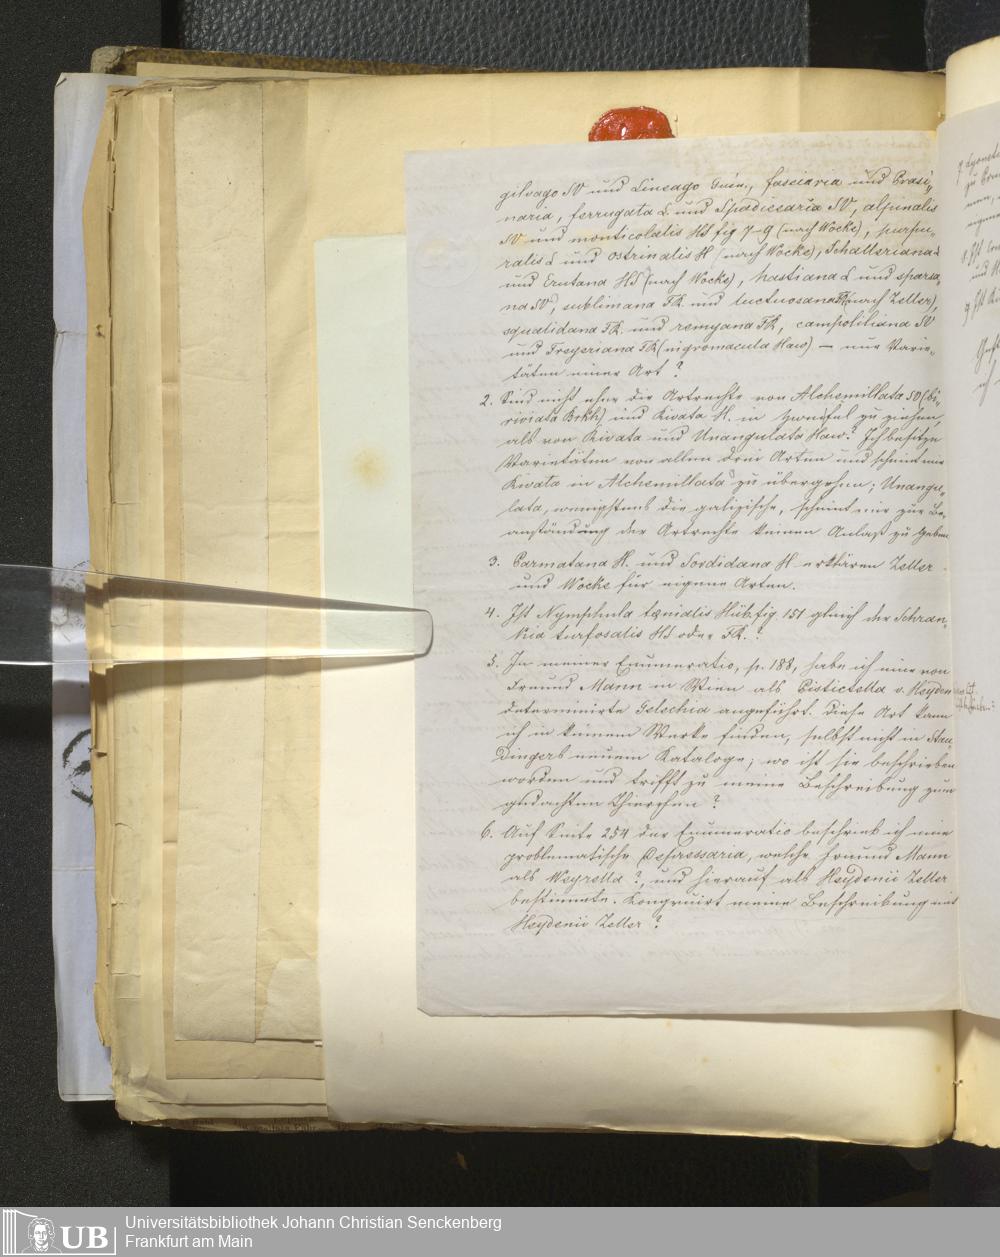 gilvago SV und Lineago Guén., fasciaria und Prasi-
naria, ferrugata L. und Spadicearia SV, alpinalis
SV und monticolalis HS fig 7-9 (nach Wocke), purpu-
ralis L und ostrinalis H (nach Wocke), Schalleriana L
und Erutana HS (nach Wocke), hastiana L und sparsa-
na SV, sublimana TR. und luctuosana TR (nach Zeller),
squalidana TR. und remyana TR, campoliliana SV
und Freyeriana TR (nigromacula Haw) — nur Varie-
täten einer Art?
2. Sind nicht eher die Artrechte von Alchemillata SV (bi-
riviata Brkh) und Rivata H. in Zweifel zu ziehen,
als von Rivata und Unangulata Haw.? Ich besitze
Varietäten von allen drei Arten und scheint mir
Rivata in Alchemillata zu übergehen; Unangu-
lata, wenigstens die galizische, scheint mir zur Be-
anständung der Artrechte keinen Anlaß zu geben
3. Parmatana H. und Sordidana H. erklären Zeller
und Wocke für eigene Arten.
4. Ist Nymphula tænialis Hüb. fig. 151 gleich der Schran-
kia turfosalis HS oder TR.?
5. In meiner Enumeratio, p. 188, habe ich eine von
Freund Mann in Wien als Cistictella v. Heyden
determinirte Gelechia angeführt. Diese Art kann
ich in keinem Werke finden, selbst nicht in Stau-
dingers neuem Kataloge; wo ist sie beschrieben
worden und trifft zu meine Beschreibung zum
gedachten Thierchen?
6. Auf Seite 254 der Enumeratio beschrieb ich eine
problematische Depressaria, welche Freund Mann
als Weyrella?, und hierauf als Heydenii Zeller
bestimmte. Kongruirt meine Beschreibung mit
Heydenii Zeller?
7
9
UB
Universitätsbibliothek Johann Christian Senckenberg
Frankfurt am Main